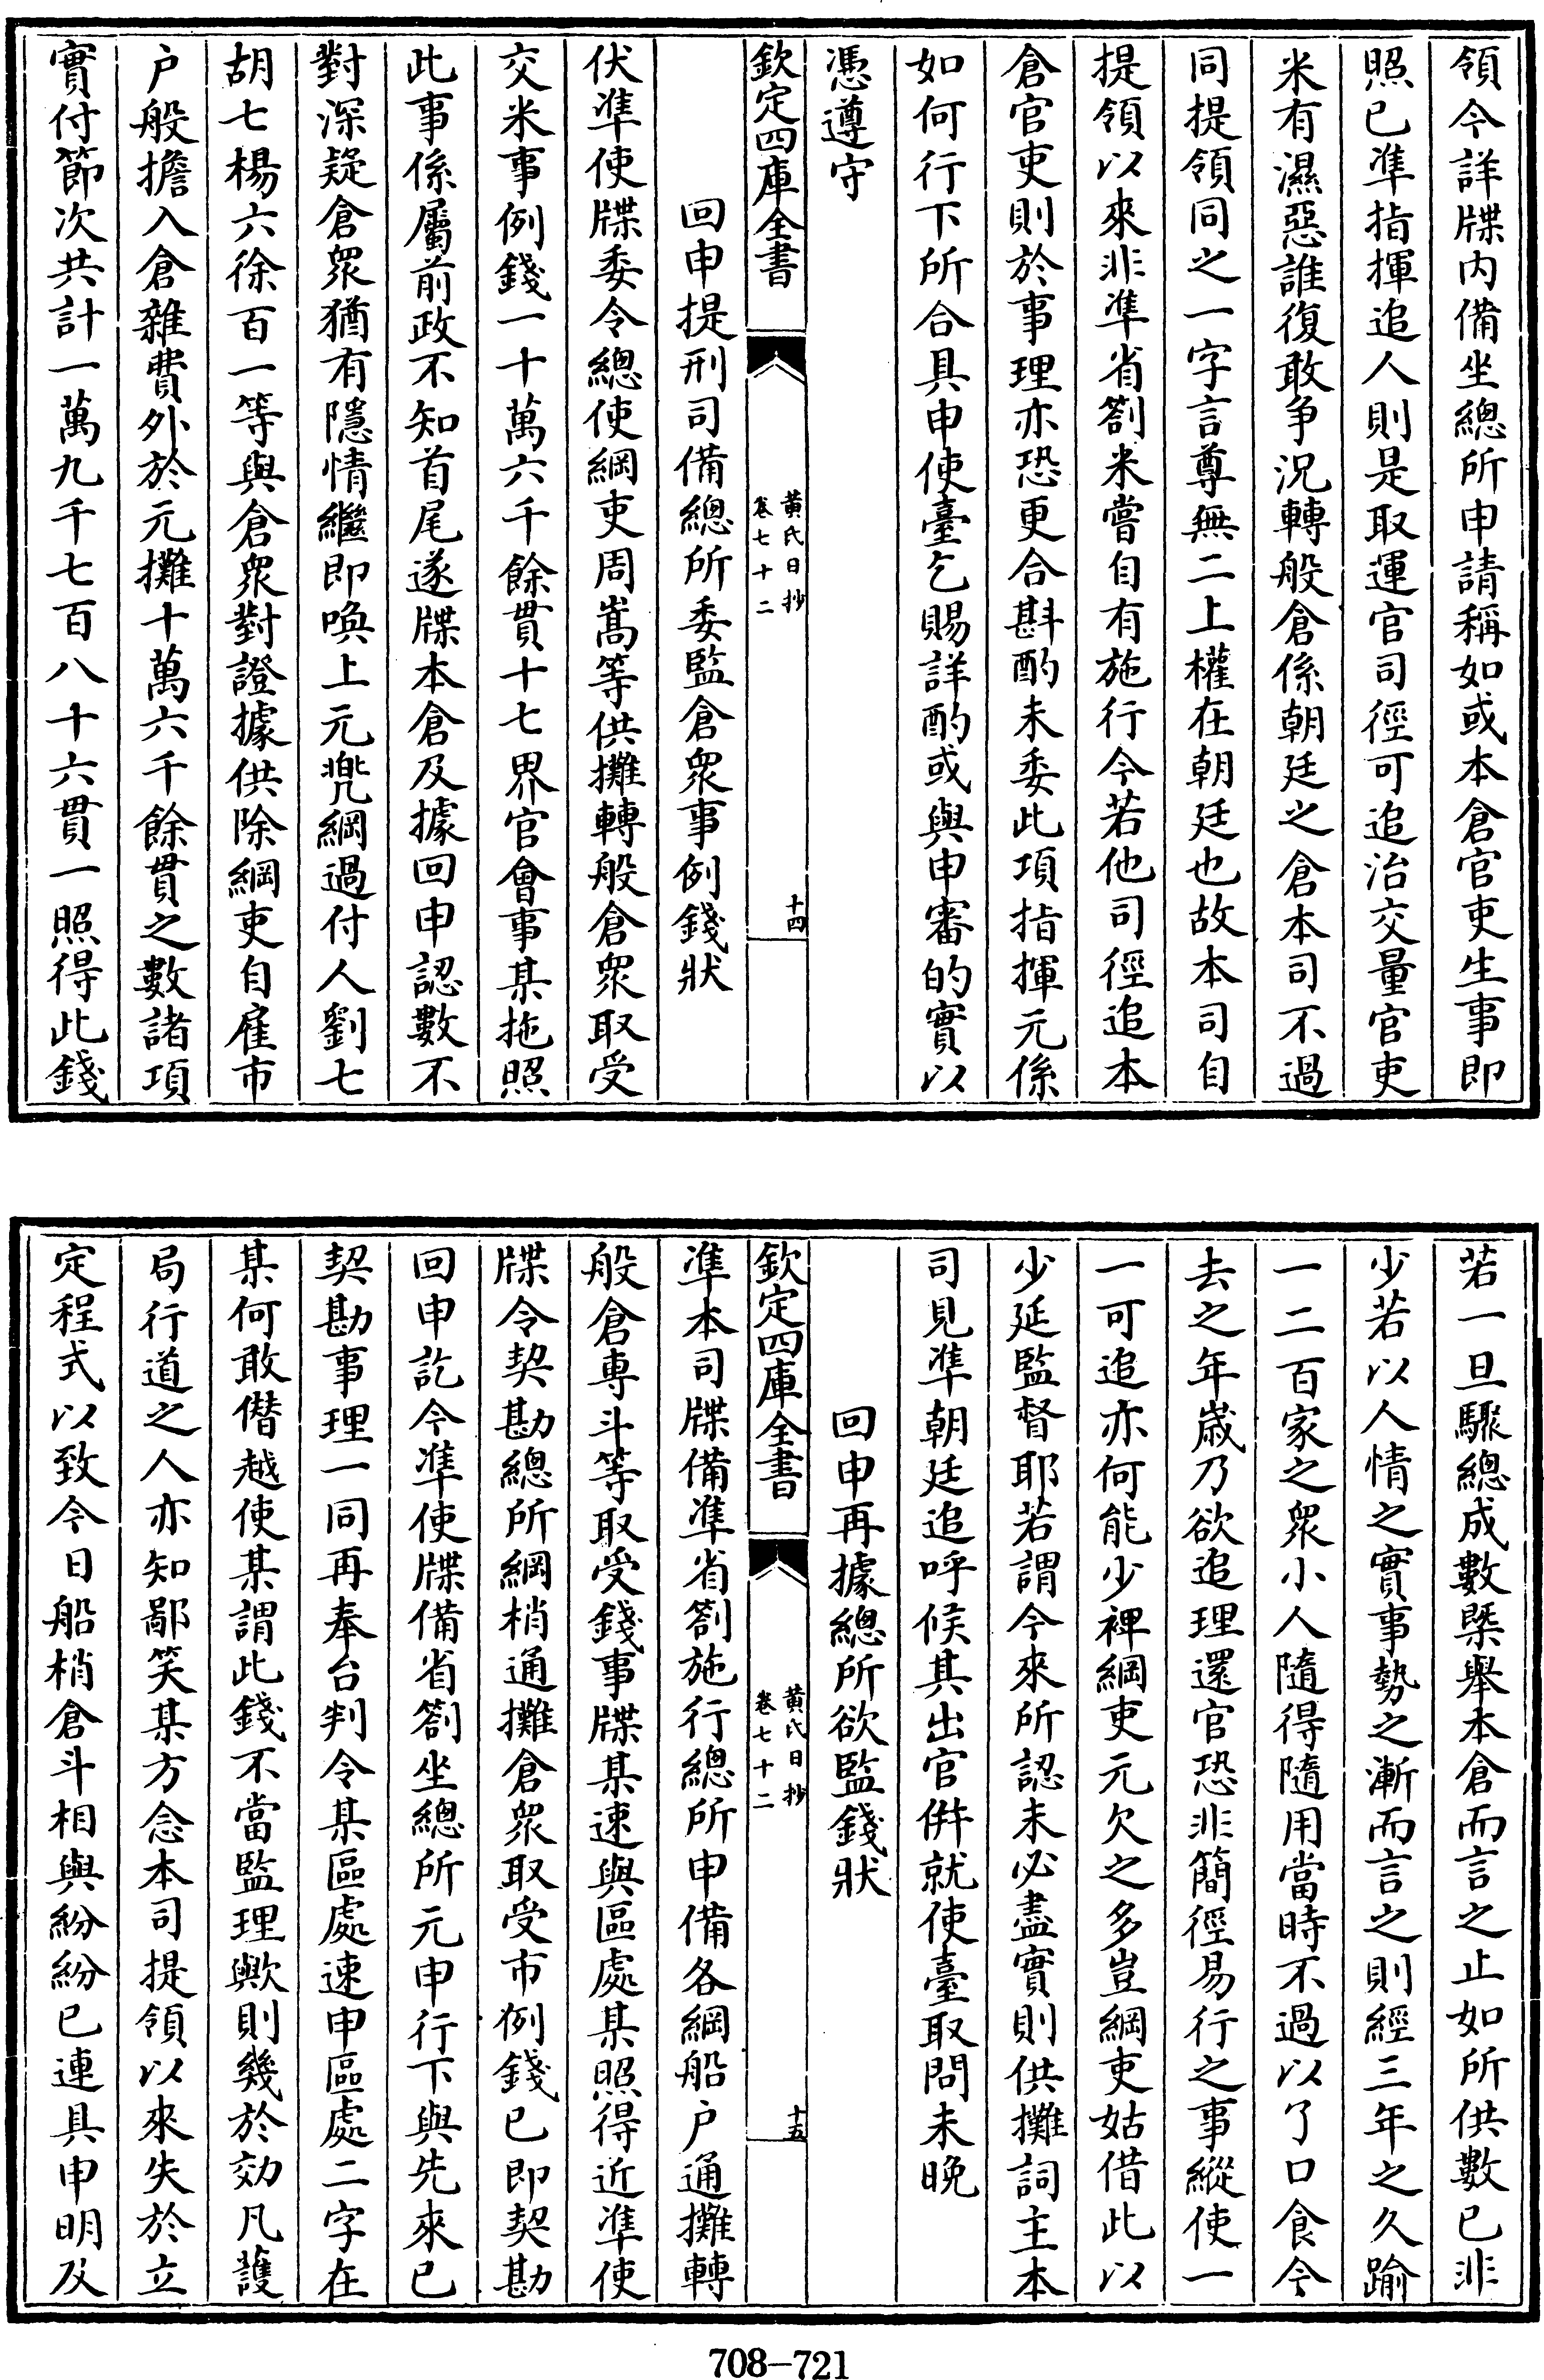 領今詳牒内備坐總所申請稱如或本倉官吏生事即
照已凖指揮追人則是取運官司徑可追治交量官吏
米有濕惡誰復敢争況轉般倉係朝廷之倉本司不過
同提領同之一字言尊無二上權在朝廷也故本司自
提領以來非凖省劄米嘗自有施行今若他司徑追本
倉官吏則於事理亦恐更合斟酌未委此項指揮元係
如何行下所合具申使臺乞賜詳酌或與申審的實以
憑遵守
欽定四庫全書
黄氏日抄
卷七十二
十四
回申提刑司備總所委監倉衆事例錢狀
伏凖使牒委令總使綱吏周嵩等供攤轉般倉衆取受
交米事例錢一十萬六千餘貫十七界官會事某拖照
此事係屬前政不知首尾遂牒本倉及據回申認數不
對深疑倉衆猶有隱情繼即喚上元兠綱過付人劉七
胡七楊六徐百一等與倉衆對證據供除綱吏自雇市
户般擔入倉雜費外於元攤十萬六千餘貫之數諸項
實付節次共計一萬九千七百八十六貫一照得此錢
若一旦驟總成數槩舉本倉而言之止如所供數已非
少若以人情之實事勢之漸而言之則經三年之久踰
一二百家之衆小人隨得隨用當時不過以了口食今
去之年歲乃欲追理還官恐非簡徑易行之事縱使一
一可追亦何能少裨綱吏元欠之多豈綱吏姑借此以
少延監督耶若謂今來所認未必盡實則供攤詞主本
司見凖朝廷追呼候其出官倂就使臺取問未晚
回申再據總所欲監錢狀
欽定四庫全書
黄氏日抄
卷七十二
十五
凖本司牒備凖省劄施行總所申備各綱船户通攤轉
般倉專斗等取受錢事牒某速與區處某照得近凖使
牒令契勘總所綱梢通攤倉衆取受市例錢已即契勘
回申訖今凖使牒備省劄坐總所元申行下與先來已
契勘事理一同再奉台判令某區處速申區處二字在
某何敢僭越使某謂此錢不當監理歟則幾於効凡護
局行道之人亦知鄙笑某方念本司提領以來失於立
定程式以致今日船梢倉斗相與紛紛已連具申明及
708—721